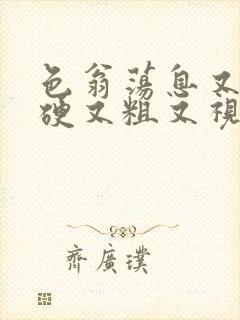 色翁荡息又
硬又粗又视
齊廣璞